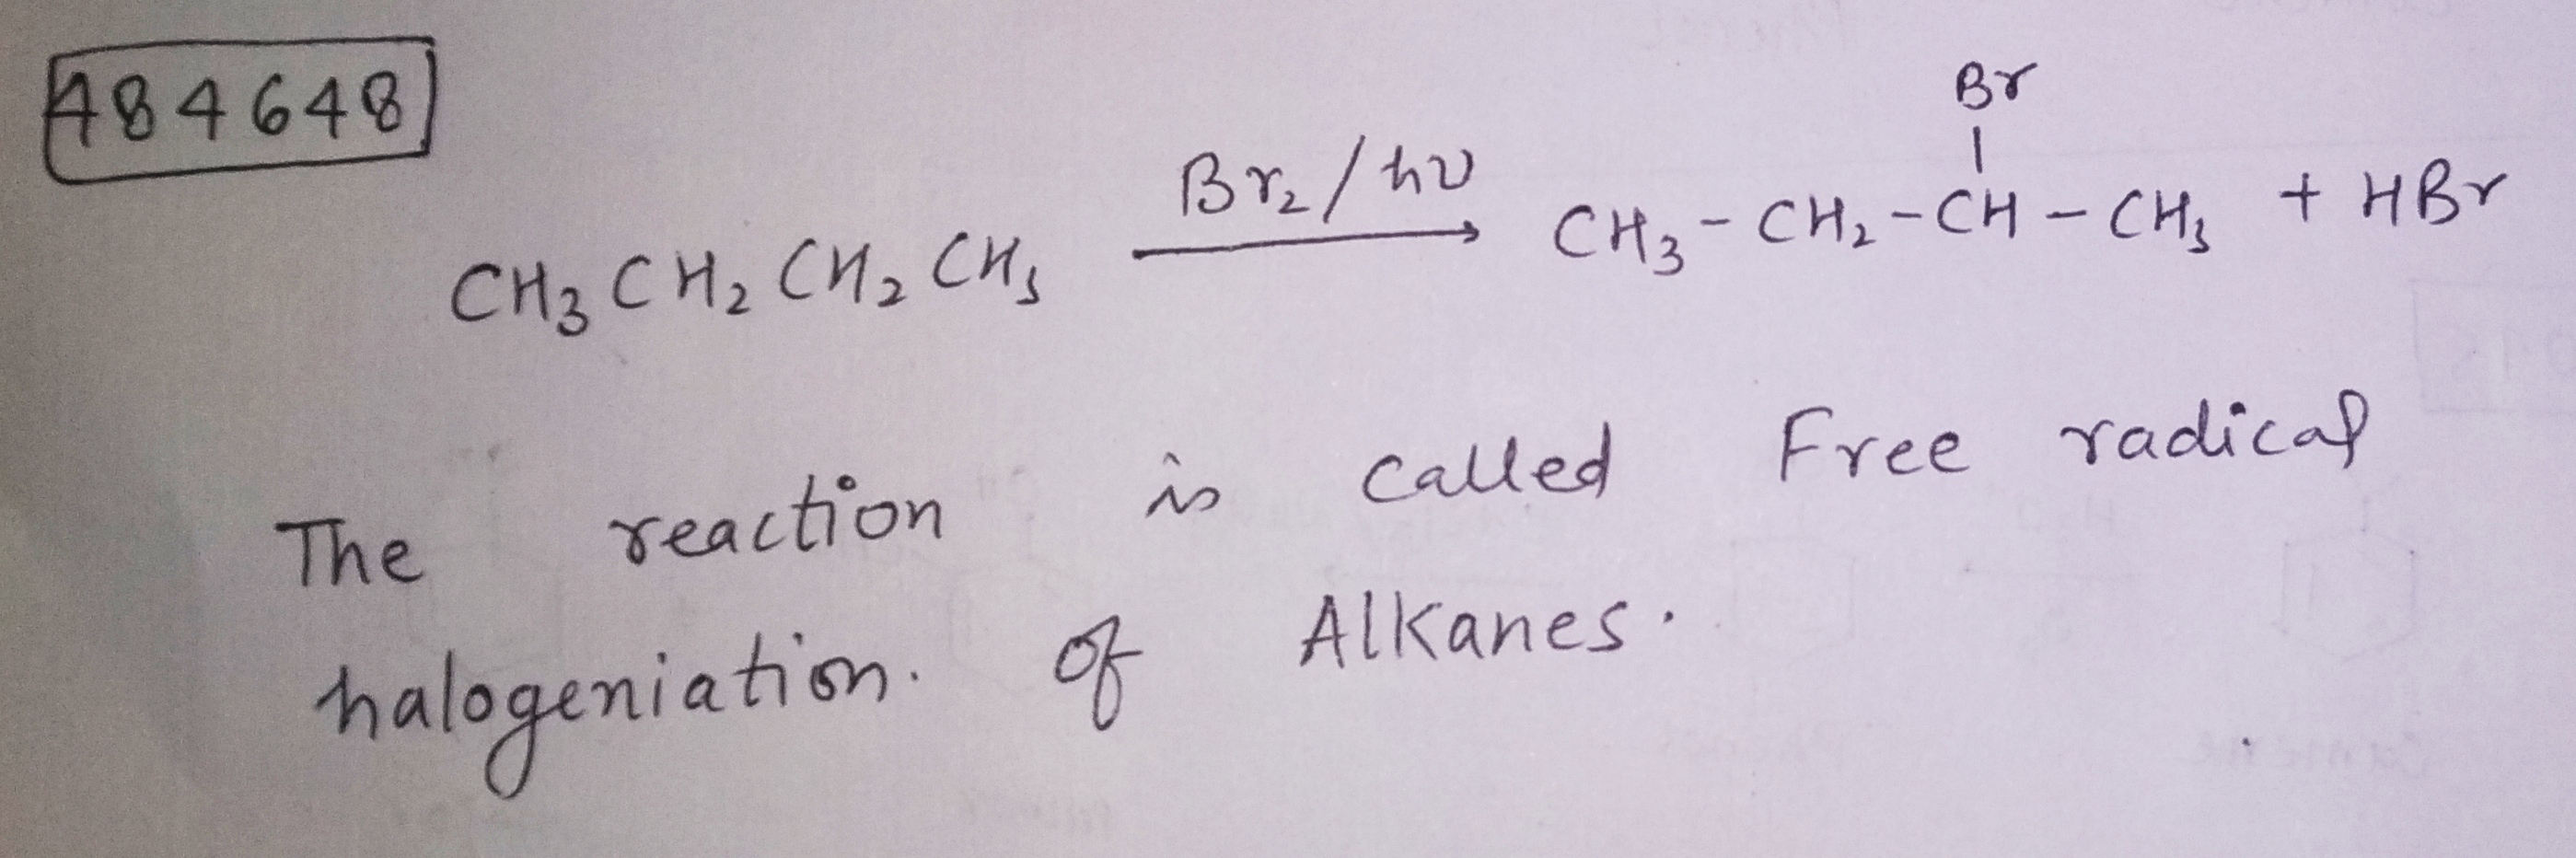 484648
Br
Br₂/hν
CH₃CH₂CH₂CH₃ → CH₃-CH₂-CH-CH₃ + HBr
The reaction is called Free radical
halogeniation. of Alkanes.